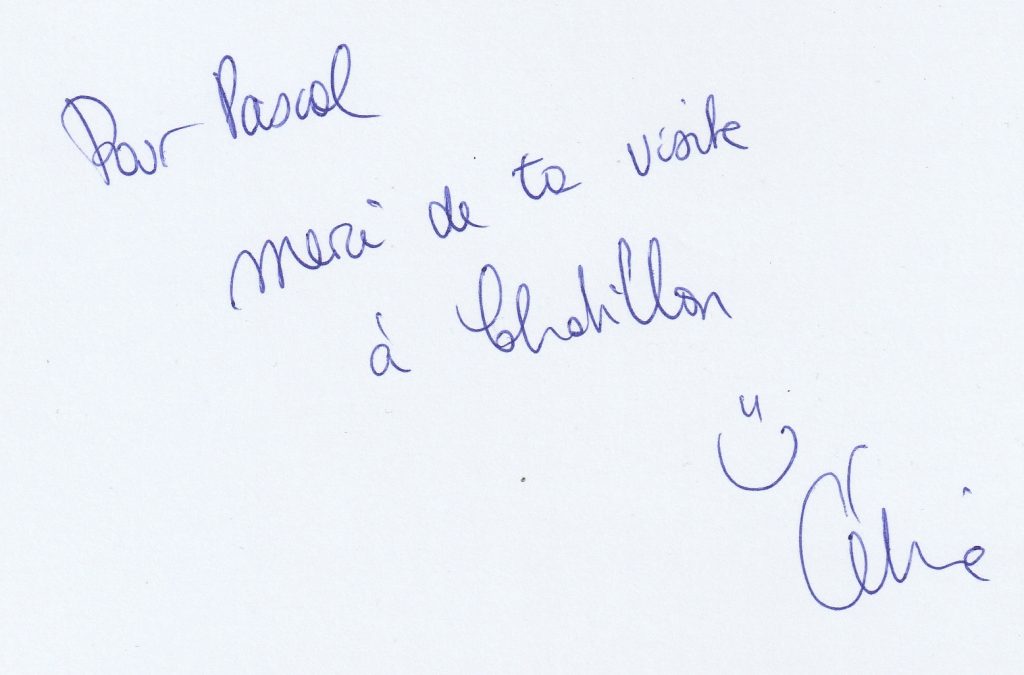 Pour Pascal
merci de ta visite
à Chatillon
Célie